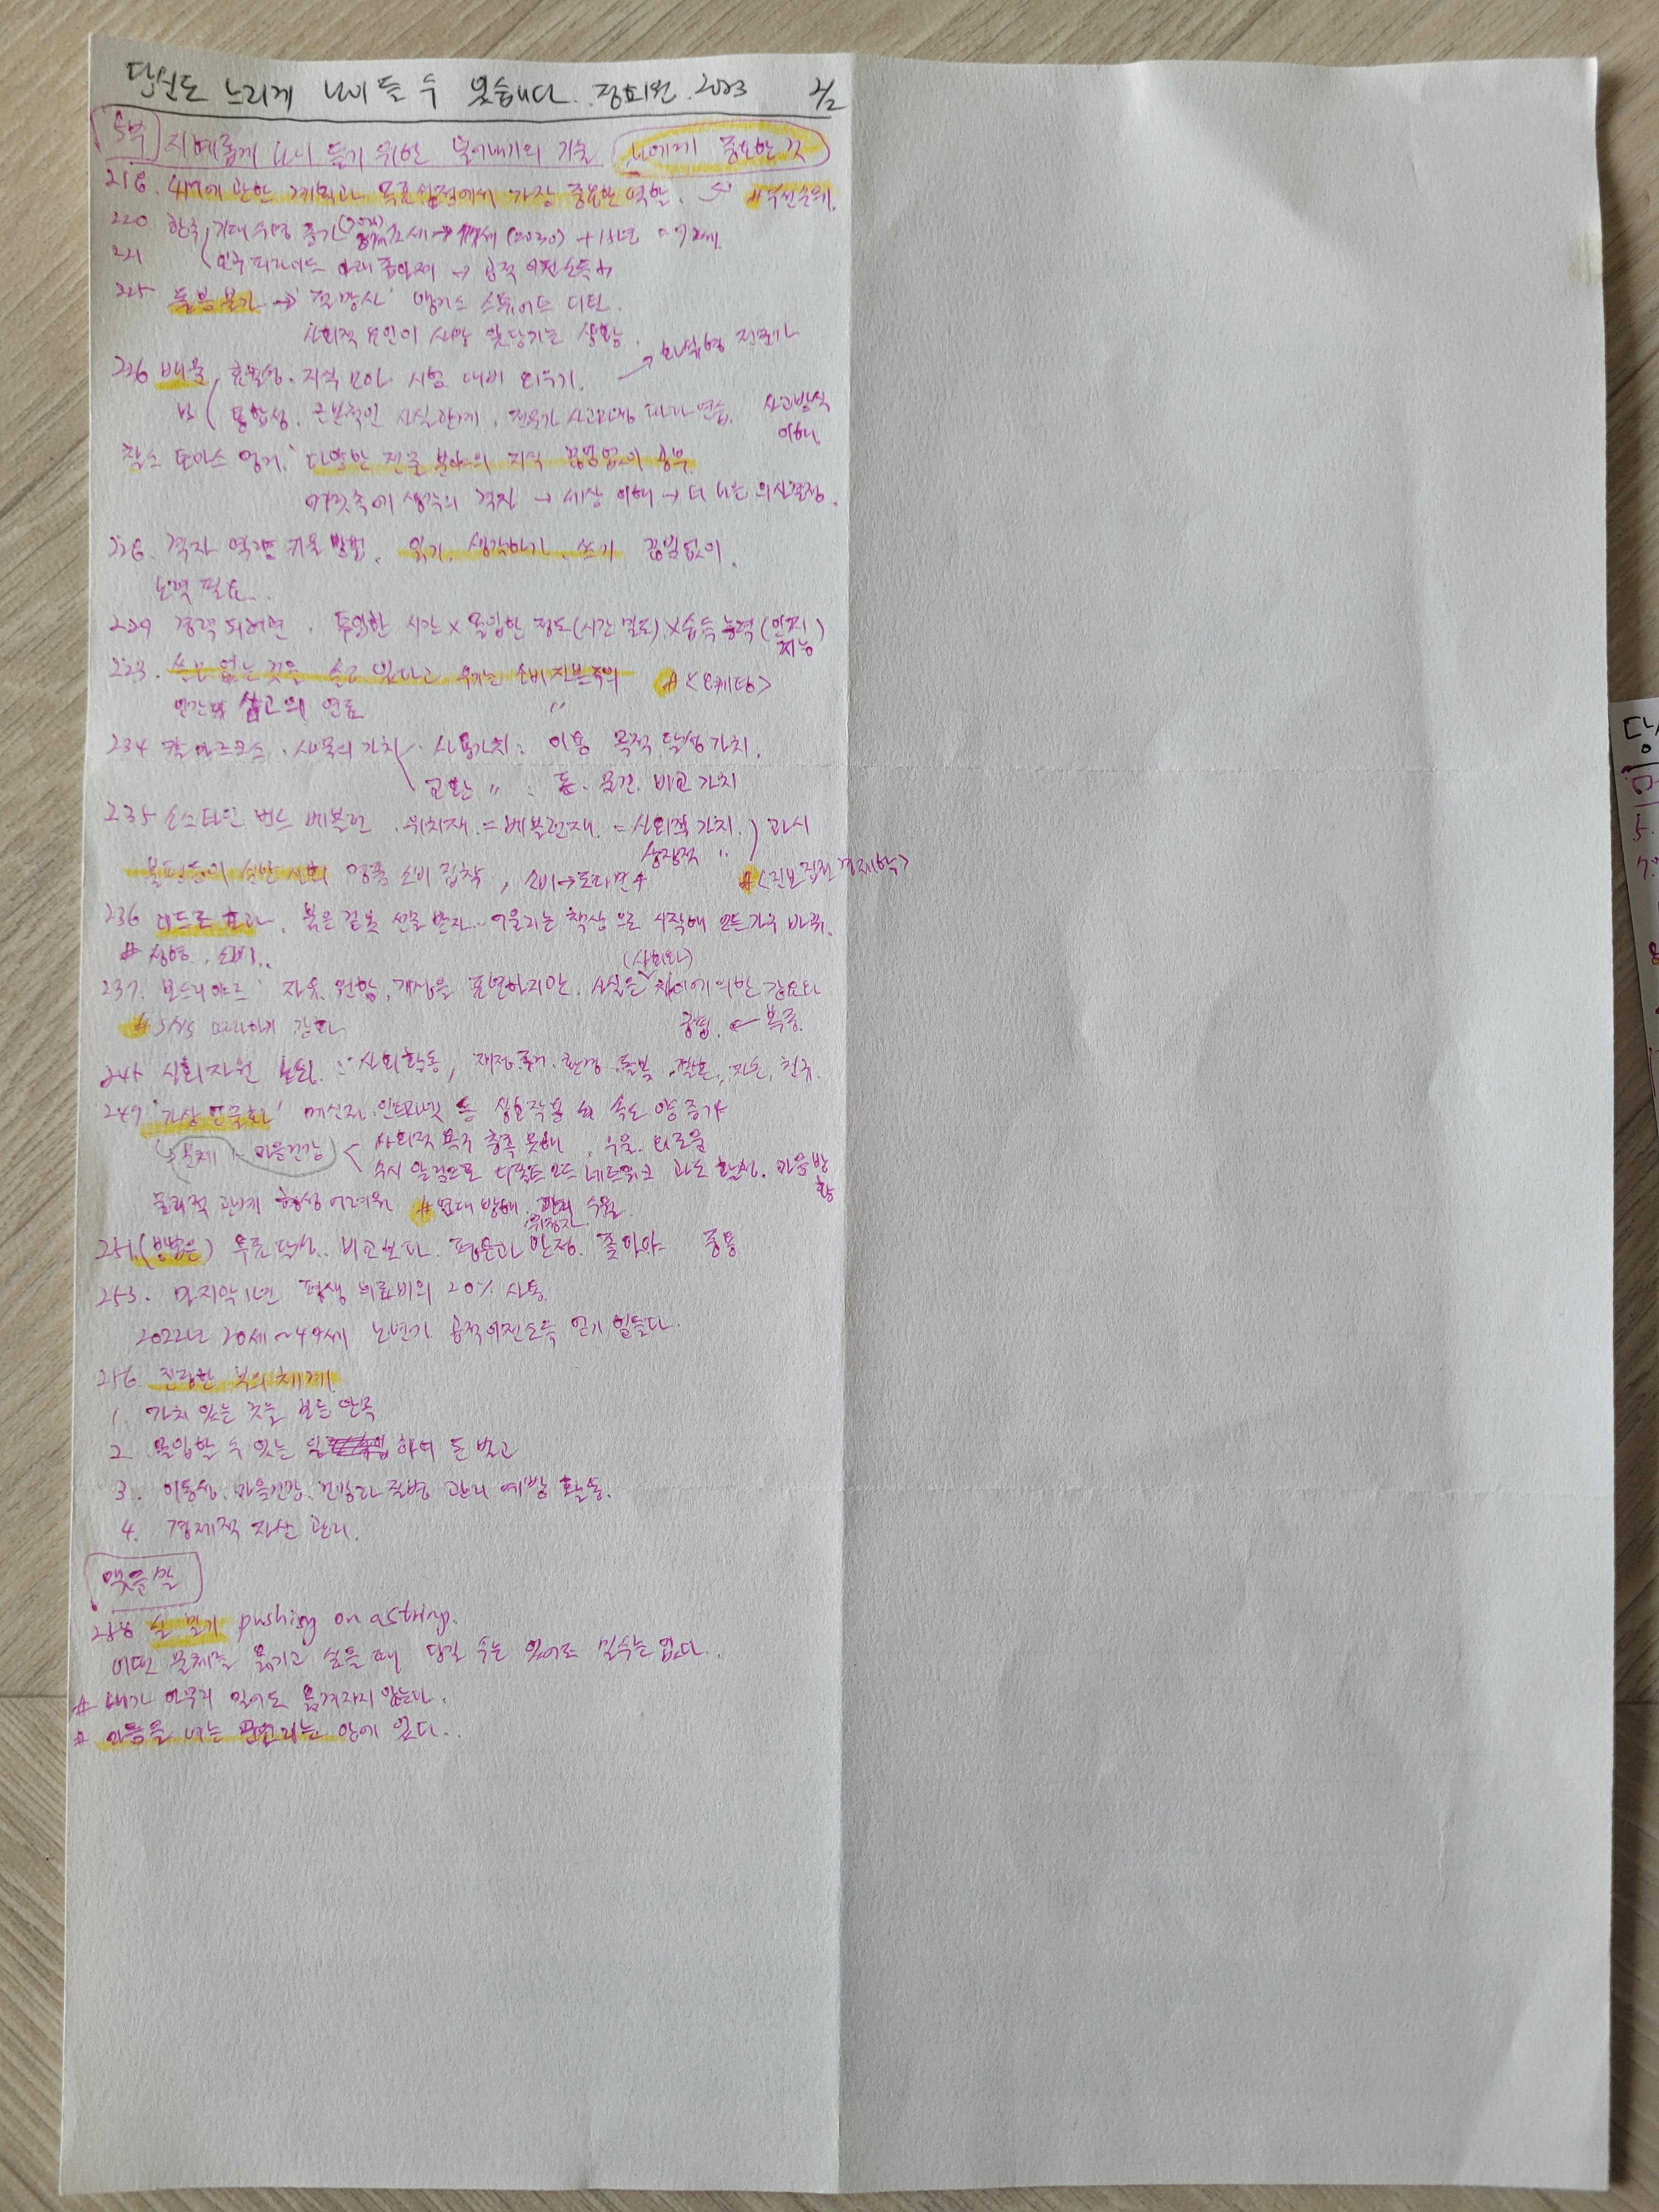 당신도 느리게 나이 들 수 있습니다. 정희원. 2023 2/2
5부 지혜롭게 나이 들기 위한 덜어내기의 기술 나에게 중요한 것
218. 4M에 관한 계획과 목표설정에서 가장 중요한 역할. #우선순위.
220 한국 기대수명 증가 (2030) + 15년
221 인구 피라미드 → 공적 이전소득
225 돌봄 불가 → '절망사' 앵거스 스튜어트 디턴.
사회적 요인이 사망 앞당기는 상황.
226 배움, 효율성. 지식 모아 시험 대비 외우기. → 전문가
통합성. 근본적인 사실관계, 전문가 사고과정 따라 연습. 사고방식
이해.
찰스 토마스 멍거. 다양한 전공 분야의 지식 끊임없이 공부.
머릿속에 생각의 격자 → 세상 이해 → 더 나은 의사결정.
228. 격자 역량 키울 방법. 읽기, 생각하기, 쓰기 끊임없이.
노력 필요.
229 경력 되려면. 투입한 시간 × 몰입한 정도(시간 밀도) × 습득 능력 (인지
지능)
223. 쓰모 없는 것을 쓸모 있다고 우기는 소비 자본주의 # <마케팅>
인간 삶 고의 연료 〃
234 칼 마르크스. 사물의 가치 사용가치: 이용 목적 달성 가치.
교환 〃 : 돈. 물건. 비교 가치
235 소스타인 번드 베블런. 위치재. = 베블런재. = 사회적 가치. ) 과시
상징적 〃
불평등이 심한 사회 명품 소비 집착, 소비→도파민↑ # <진보 집권 경제학>
236 디드로 효과. 붉은 겉옷 선물 받자.. 어울리는 책상으로 시작해 모든 가구 바뀜.
# 소비..
(사회와)
237. 보드리야르 자유, 원함, 개성을 표현하지만, 사실은 차이에 의한 강요다
# SNS 강화 ← 복종.
245 사회자원 노화. : 사회활동, 재정. 주거. 환경. 돌봄. 결혼, 자손, 친구.
249 '가상 메신저. 인터넷 등 상호작용의 속도 양 증가
실제 마음건강 < 사회적 욕구 충족 못해. 우울. 외로움
수시 알림으로 디폴트 모드 네트워크 과도 활성. 마음 방
황
물리적 관계 형성 어려워 #연대 방해. 수월.
위정자
251. (방법은) 목표 달성.. 비교보다. 평온과 안정. 좇아야 중용
253. 마지막 1년 평생 의료비의 20% 사용.
2022년 20세~49세 노년기 공적이전소득 얻기 힘들다.
256 진정한 부의 체계
1. 가치 있는 것을 보는 안목
2. 몰입할 수 있는 일 하여 돈 벌고
3. 이동성. 마음건강. 건강과 질병 관리 예방 활동.
4. 경제적 자산 관리.
맺음말
258 실 밀기 pushing on a string.
어떤 물체를 옮기고 싶을 때 당길 수는 있어도 밀 수는 없다..
# 내가 아무리 밀어도 옮겨가지 않는다.
# 마음을 여는 문고리는 안에 있다..